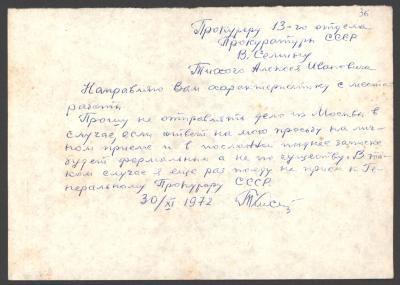 36
Прокурору 13-го отдела
Прокуратуры СССР
В. Селину
Тихого Алексея Ивановича
Направляю Вам характеристику с места
работы.
Прошу не отправлять дело из Москвы в
случае, если ответ на мою просьбу на лич-
ном приеме и в посланной позднее записке
будет формальным а не по существу. В та-
ком случае я еще раз поеду на прием к Ге-
неральному Прокурору СССР.
30/XI 1972